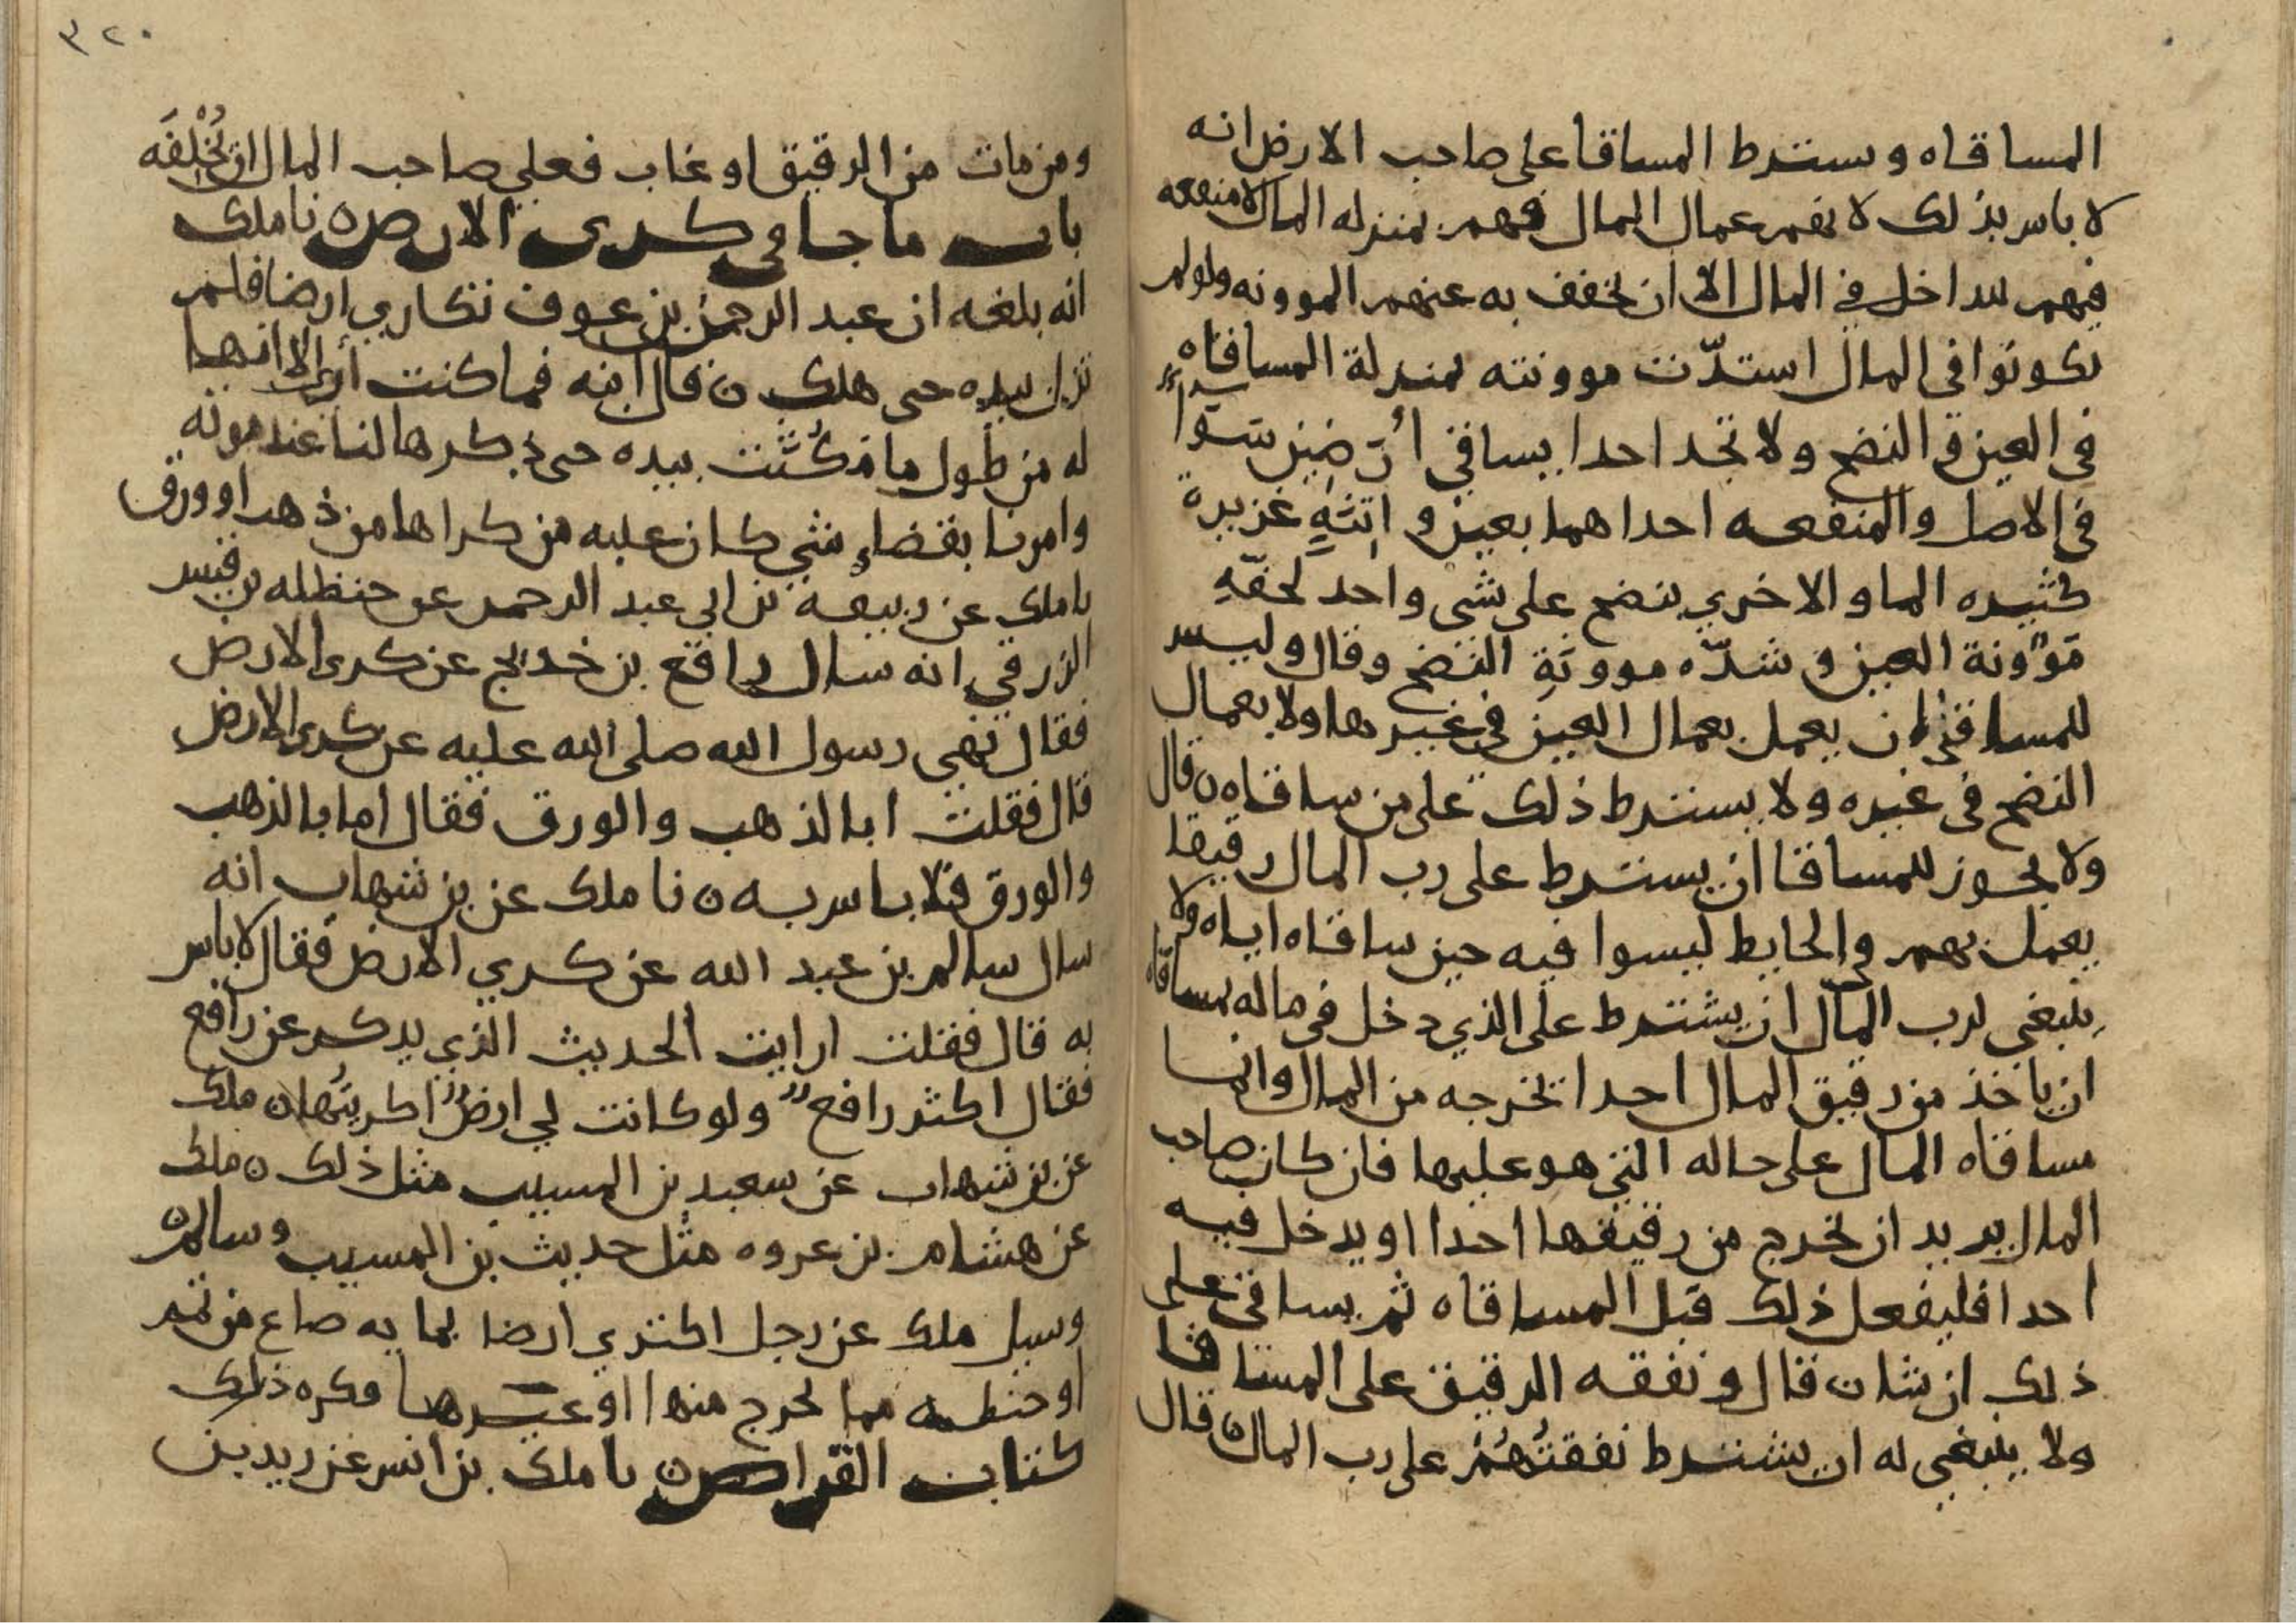 المساقاه ويسترط المساقا على صاحب الارض انه
لا باس بذلك لانهم عمال المال فهم بمنزله المال لا منفعه
فيهم للداخل في المال الا ان يخفف به عنهم الموونه ولو لم
يكونوا في المال استدّت موونته بمنزلة المساقاه
في العين والنضح ولا تجد احدا يساقي أرضين سوا
في الاصل والمنفعه احداهما بعين واتنةٍ غزيرة
كثيره الما والاخري بنضح على شي واحد لخفّةِ
مَوُونة العين وشدّه موونَةِ النضح وقال وليس
للمساقي ان يعمل بعمال العين في غيرها ولا بعمال
النضح في غيره ولا يسترط ذلك على من ساقاه ن قال
ولا يجوز للمساقا ان يسترط على رب المال رقيقا
يعمل بهم في الحايط ليسوا فيه حين ساقاه اياه ولا
ينبغي لرب المال ان يشترط على الذي دخل في ماله بمساقاه
ان ياخذ من رقيق المال احدا تخرجه من المال وانما
مساقاه المال على حاله التي هو عليها فان كان صاحب
المال يريد ان يخرج من رقيقها احدا او يدخل فيه
احدا فليفعل ذلك قبل المساقاه ثم يساقي على
ذلك ان شا ن قال ونفقه الرقيق على المساقا
ولا ينبغي له ان يشترط نفقتُهُمْ على رب المال ن قال
٣٢٠
ومن مات من الرقيق او غاب فعلي صاحب المال ان يُخْلِفَه
باب ما جا في كرى الارض ن نا ملك
انه بلغه ان عبد الرحمن بن عوف تكاري ارضا فلم
تزل بيده حى هلك ن قال ابنه فما كنت أراى الا انها
له من طول ما مَكُثَت بيده حى ذكرها لنا عند موته
وامرنا بقضاءِ شي كان عليه من كراها من ذهب او ورق
نا ملك عن ربيعه بن ابي عبد الرحمن عن حنظله بن قيس
الزرقي انه سال رافع بن خديج عن كرى الارض
فقال نهي رسول الله صلى الله عليه عن كرى الارض
قال فقلت ابالذهب والورق فقال اما بالذهب
والورق فلا باس به ن نا ملك عن بن شهاب انه
سال سالم بن عبد الله عن كري الارض فقال لا باس
به قال فقلت ارايت الحديث الذي يذكر عن رافع
فقال اكثر رافع ولو كانت لي ارضٌ اكريتُها ن ملك
عن بن شهاب عن سعيد بن المسيب مثل ذلك ن ملك
عن هشام بن عروه مثل حديث بن المسيب وسالم ن
وسيل ملك عن رجل اكتري ارضا بمايه صاع من تمر
او حنطه مما يخرج منها او غيرها فكره ذلك
كتاب القراض ن نا ملك بن انس عن زيد بن